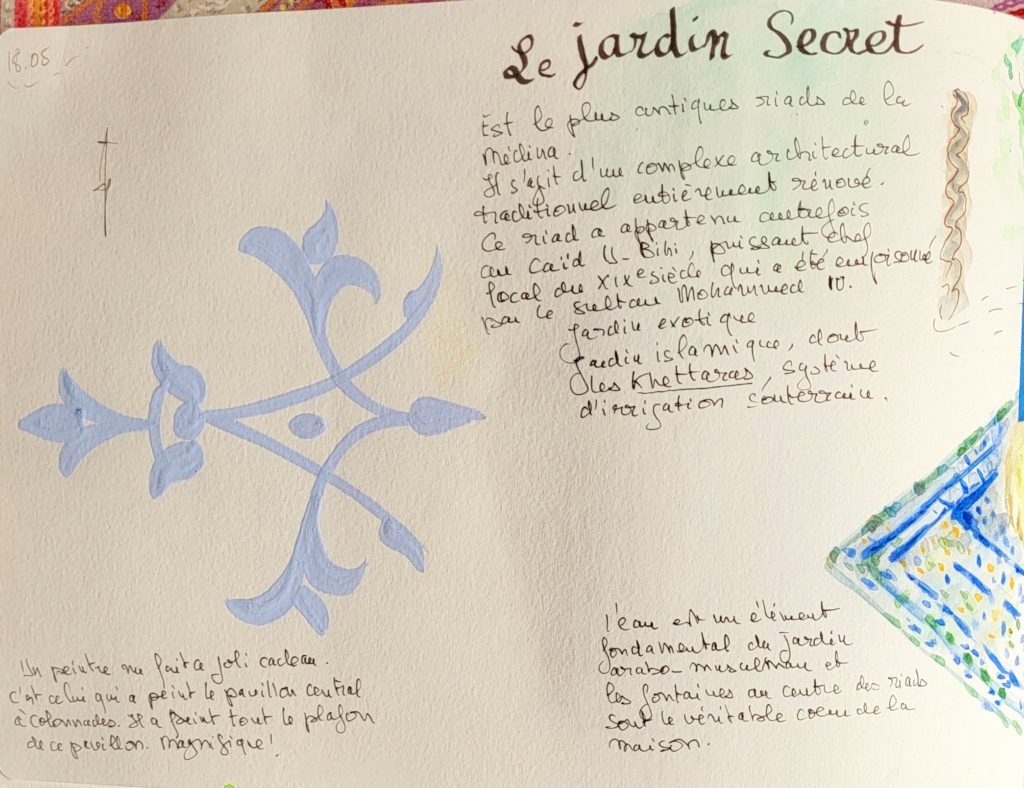 18.05
Le jardin Secret
Est le plus antiques riads de la
Médina.
Il s'agit d'un complexe architectural
traditionnel entièrement rénové.
Ce riad a appartenu autrefois
au Caïd U-Bihi, puissant chef
local du XIXe siècle qui a été empoisonné
par le sultan Mohammed IV.
Jardin exotique
Jardin islamique, dont
les Khettaras, système
d'irrigation souterraine.
Un peintre me fait ce joli cadeau.
c'est celui qui a peint le pavillon central
à colonnades. Il a peint tout le plafon
de ce pavillon. Magnifique !
l'eau est un élément
fondamental du jardin
arabo-musulman et
les fontaines au centre des riads
sont le véritable coeur de la
maison.